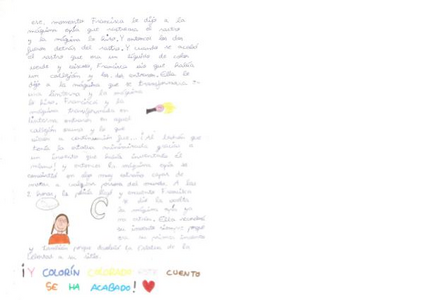 ese momento Francisca le dijo a la
máquina espía que rastreara el rastro
y la máquina lo hizo. Y entonces las dos
fueron detrás del rastro. Y cuando se
el rastro que era un líquido de color
verde y Francisca vio que había
un callejón y las dos entraron. Ella le
dijo a la máquina que se transformara en
una linterna y la máquina
lo hizo. Francisca y la
máquina transformada en
linterna entraron en aquel
callejón oscuro y lo que
vieron a continuación fue...
tenía la estatua minimizada gracias a
un invento que había inventado él
mismo! y entonces la máquina espía se
convirtió en algo muy extraño capaz de
a cualquier persona del mundo. A las
2 horas, la policía llegó y entonces Francisca
le dio la
la máquina espía
Ella recordará
su invento siempre porque
era su primer invento
y también porque la Estatua de la
Libertad a su sitio.
¡Y COLORÍN COLORADO ESTE CUENTO
SE HA ACABADO!